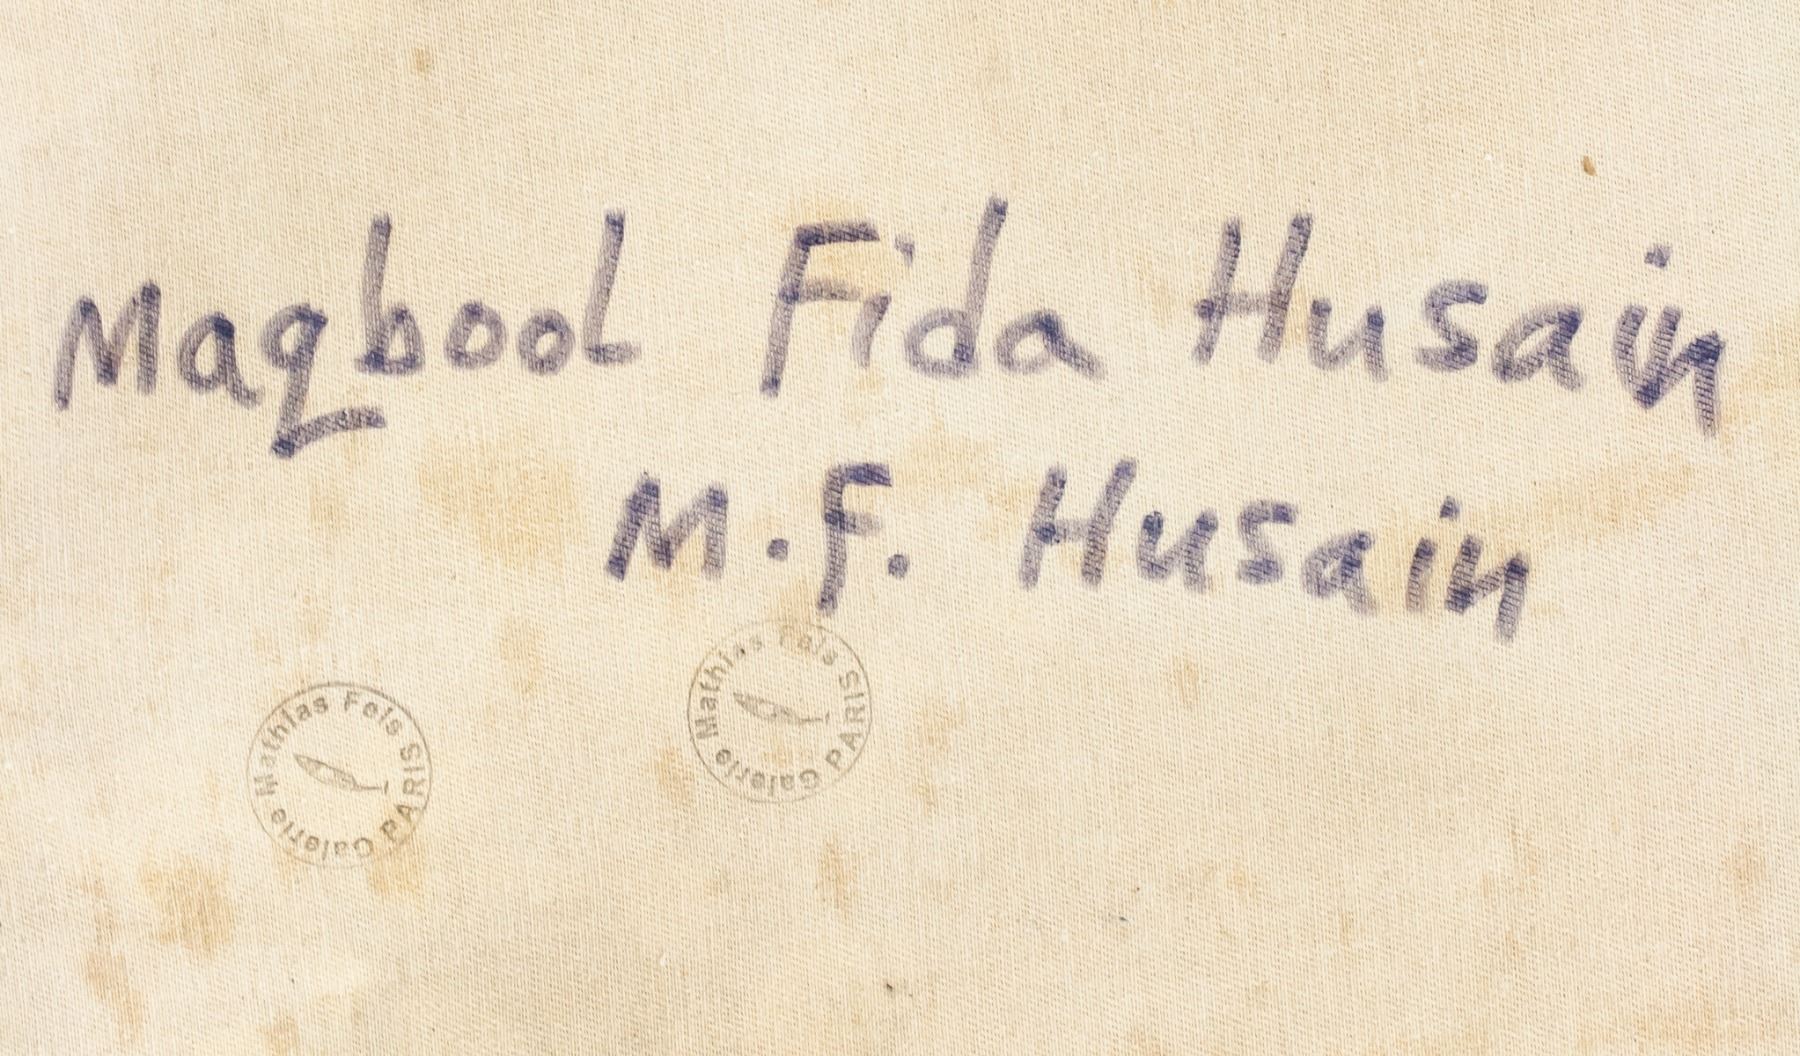 Maqbool Fida Husain
M.F. Husain
Galerie Mathias Fels PARIS
Galerie Mathias Fels PARIS